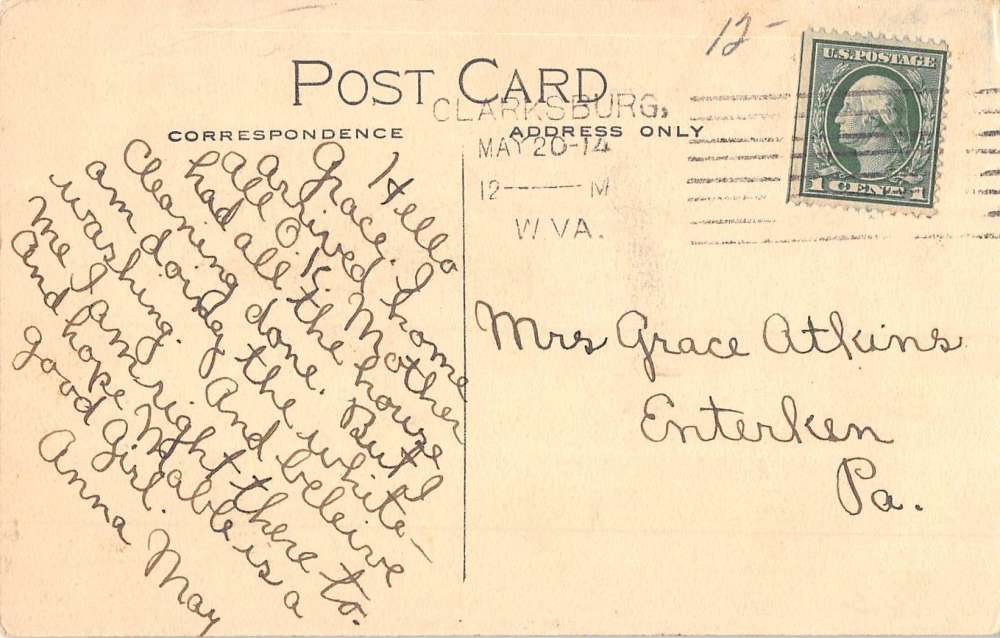 12-
U.S. POSTAGE
1 CENT 1
POST CARD
CORRESPONDENCE
ADDRESS ONLY
CLARKSBURG,
MAY 20-14
12 M
W.VA.
Hello
Grace. I
arived home
all O.K. Mother
had all the house
cleaning done. But I
am doing the white-
washing. And beleive
me I am right there to.
And hope Mable is a
good girl.
Anna May
Mrs Grace Atkins
Enterken
Pa.